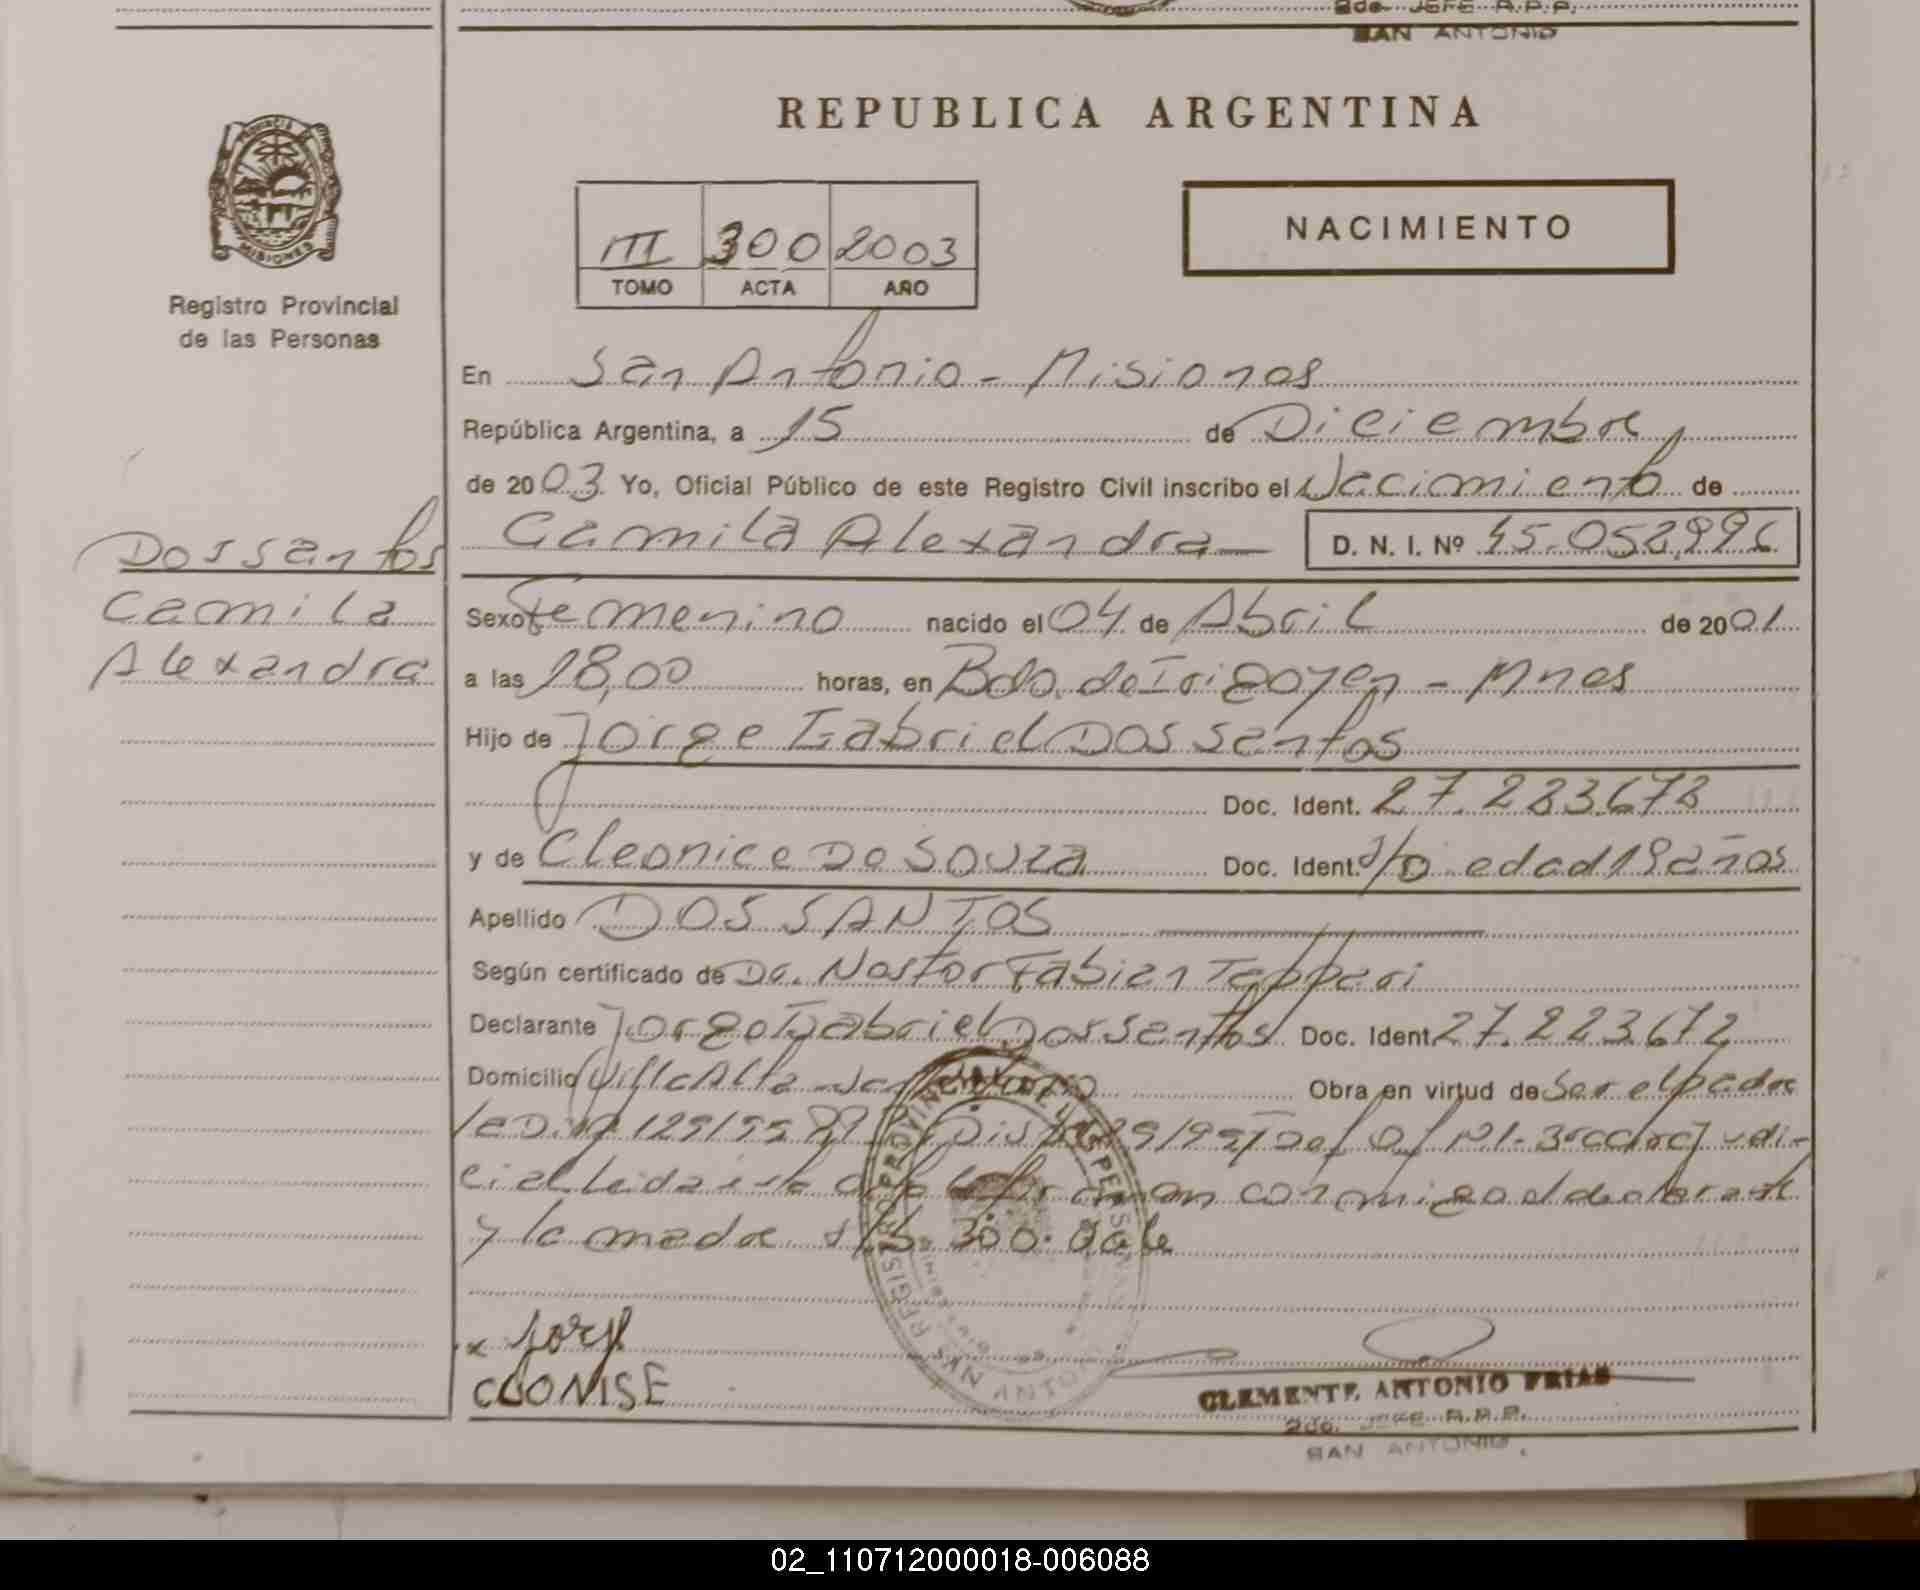 2do. JEFE R.P.P.
SAN ANTONIO
REPUBLICA ARGENTINA
PROVINCIA
MISIONES
III 300 2003
TOMO ACTA AÑO
NACIMIENTO
Registro Provincial
de las Personas
En San Antonio - Misiones
República Argentina, a 15 de Diciembre
de 2003 Yo, Oficial Público de este Registro Civil inscribo el Nacimiento de
Camila Alexandra D. N. I. Nº 45.052.996
Dos santos
Camila
Alexandra
Sexo Femenino nacido el 04 de Abril de 2001
a las 18,00 horas, en Bdo. de Irigoyen - Mnes
Hijo de Jorge Gabriel Dos santos
Doc. Ident. 27.223.672
y de Cleonice De Souza Doc. Ident. s/D. edad 19 años
Apellido DOS SANTOS
Según certificado de Dr. Nestor Fabian
Declarante Jorge Gabriel Dos santos Doc. Ident. 27.223.672
Domicilio Villa Alta - San Antonio Obra en virtud de Ser el padre
129/99 Dis. 29/99
cial Leida firman conmigo el declarante
y la madre 300. Vale
Jorge
CLONISE
REGISTRO PROVINCIAL DE LAS PERSONAS
SAN ANTONIO MNES
CLEMENTE ANTONIO FRIAS
2do. JEFE R.P.P.
SAN ANTONIO.
02_110712000018-006088